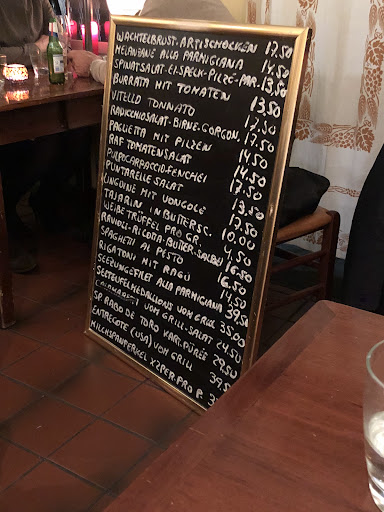 WACHTELBRUST-ARTISCHOCKEN 17.50
MELANZANE ALLA PARMIGIANA 14.50
SPINATSALAT-EI,SPECK-PILZE-PAR. 13.50
BURRATA MIT TOMATEN 13.50
VITELLO TONNATO 17.50
RADICCHIOSALAT-BIRNE.GORGON. 17.50
PAGLIETTA MIT PILZEN 14.50
RAF TOMATENSALAT 14.50
PULPOCARPACCIO-FENCHEL 17.50
PUNTARELLE SALAT 13.50
LINGUINE MIT VONGOLE 17.50
TAJARIN IN BUTTERSC. 10.00
WEIßE TRÜFFEL PRO GR. 4.50
RAVIOLI-RICOTTA-BUTTER,SALBEI 16.50
SPAGHETTI AL PESTO 16.50
RIGATONI MIT RAGÚ 14.50
SEEZUNGENFILET ALLA PARMIGIANA 39.50
SEETEUFELMEDALLIONS VOM GRILL 35.00
CALAMARETTI VOM GRILL-SALAT 24.50
SP RABO DE TORO KART.PÜRÉE 29.50
ENTRECOTE (USA) VOM GRILL 39.
MILCHSPANFERKEL X2PER.PRO P. 3